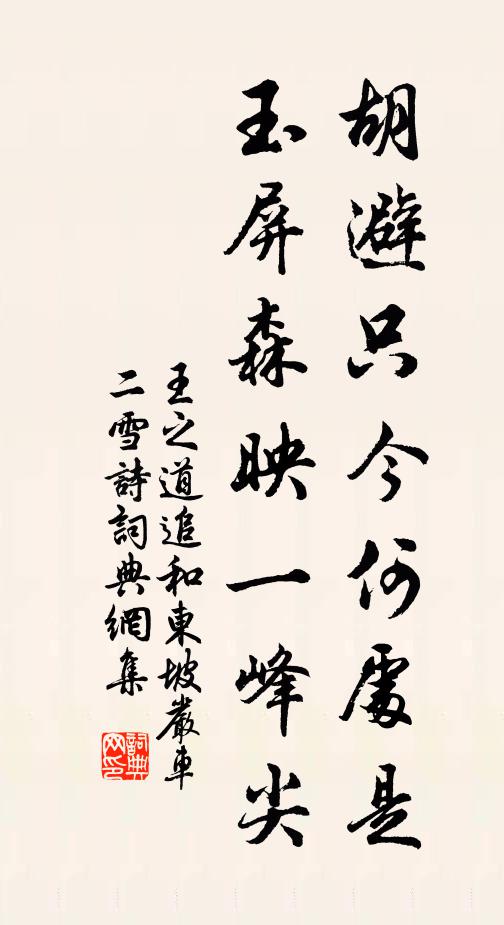 胡避只今何處是
玉屏森映一峰尖
王之道追和東坡嚴車
二雪詩詞典網集
詞典
网印